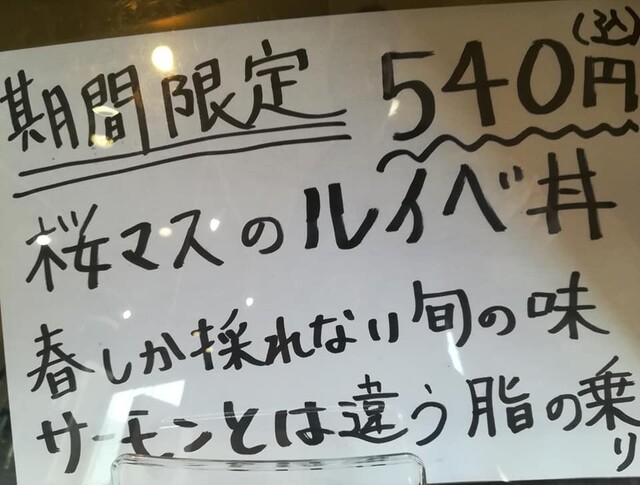 期間限定 540円(込)
桜マスのルイベ丼
春しか採れない旬の味
サーモンとは違う脂の乗り